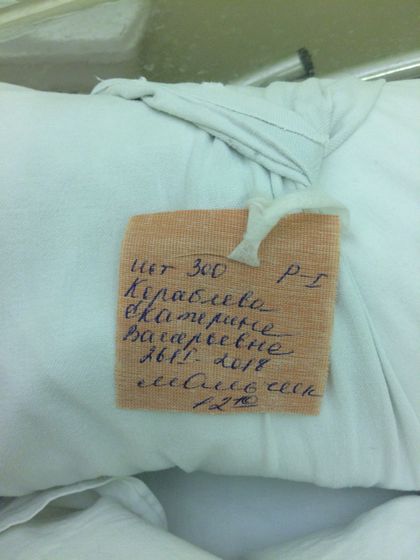 ист 300 Р-I
Кораблева
Екатерине
Валерьевне
26 I- 2018
мальчик
12 10